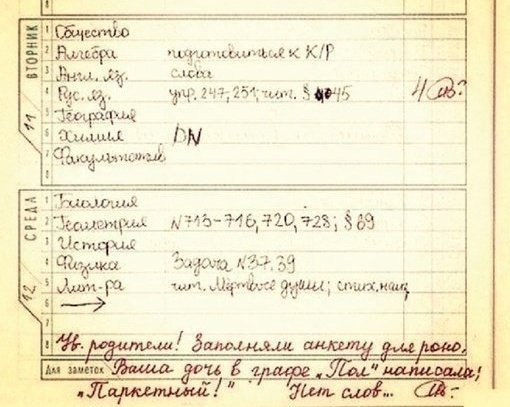 8
ВТОРНИК
11
1 Общество
2 Алгебра подготовиться к К/Р
3 Англ. яз. слова
4 Рус. яз. упр. 247, 251, чит. § 45 4
5 География
6 Химия DN
7 Факультатив
8
СРЕДА
12
1 Биология
2 Геометрия N 715-716, 720, 728; § 69
3 История
4 Физика Задача N37.39
5 Лит-ра чит. Мёртвые души; стих. наиз.
6 →
7
8 Ув. родители! Заполняли анкету для роно.
Для заметок Ваша дочь в графе „Пол" написала:
„Паркетный!" Нет слов...